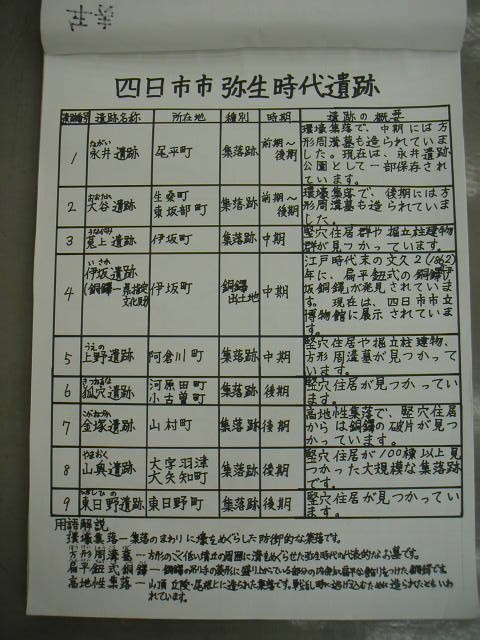 四日市市 弥生時代遺跡
遺跡番号 遺跡名称 所在地 種別 時期 遺跡の概要
1 ながい 永井遺跡 尾平町 集落跡 前期〜後期 環壕集落で、中期には方
形周溝墓も造られていま
した。現在は、永井遺跡
公園として一部保存され
ています。
2 おおたに 大谷遺跡 生桑町 東坂部町 集落跡 前期〜後期 環壕集落で、後期には方
形周溝墓も造られていま
した。
3 菟上遺跡 伊坂町 集落跡 中期 竪穴住居群や掘立柱建物
群が見つかっています。
4 いさか 伊坂遺跡 (銅鐸一県指定文化財) 伊坂町 銅鐸出土地 中期 江戸時代末の文久2(1862)
年に、扁平鈕式の銅鐸(伊
坂銅鐸)が発見されていま
す。現在は、四日市市立
博物館に展示されていま
す。
5 うえの 上野遺跡 阿倉川町 集落跡 中期 竪穴住居や掘立柱建物、
方形周溝墓が見つかって
います。
6 きつねあな 狐穴遺跡 河原田町 小古曽町 集落跡 後期 竪穴住居が見つかってい
ます。
7 金塚遺跡 山村町 集落跡 後期 高地性集落で、竪穴住居
からは銅鐸の破片が見つ
かっています。
8 やまおく 山奥遺跡 大字羽津 大矢知町 集落跡 後期 竪穴住居が100棟以上見
つかった大規模な集落跡
です。
9 ひがしひの 東日野遺跡 東日野町 集落跡 後期 竪穴住居が見つかってい
ます。
用語解説
環壕集落ー集落のまわりに壕をめぐらした防御的な集落です。
方形周溝墓ー方形のごく低い墳丘の周囲に溝をめぐらせた弥生時代の代表的なお墓です。
扁平鈕式銅鐸ー銅鐸の吊り手の菱形に盛り上がっている部分の内側に扁平な飾りをつけた銅鐸です。
高地性集落ー山頂、丘陵・尾根上に造られた集落です。戦乱時に逃げ込むために造られたともいわ
れています。